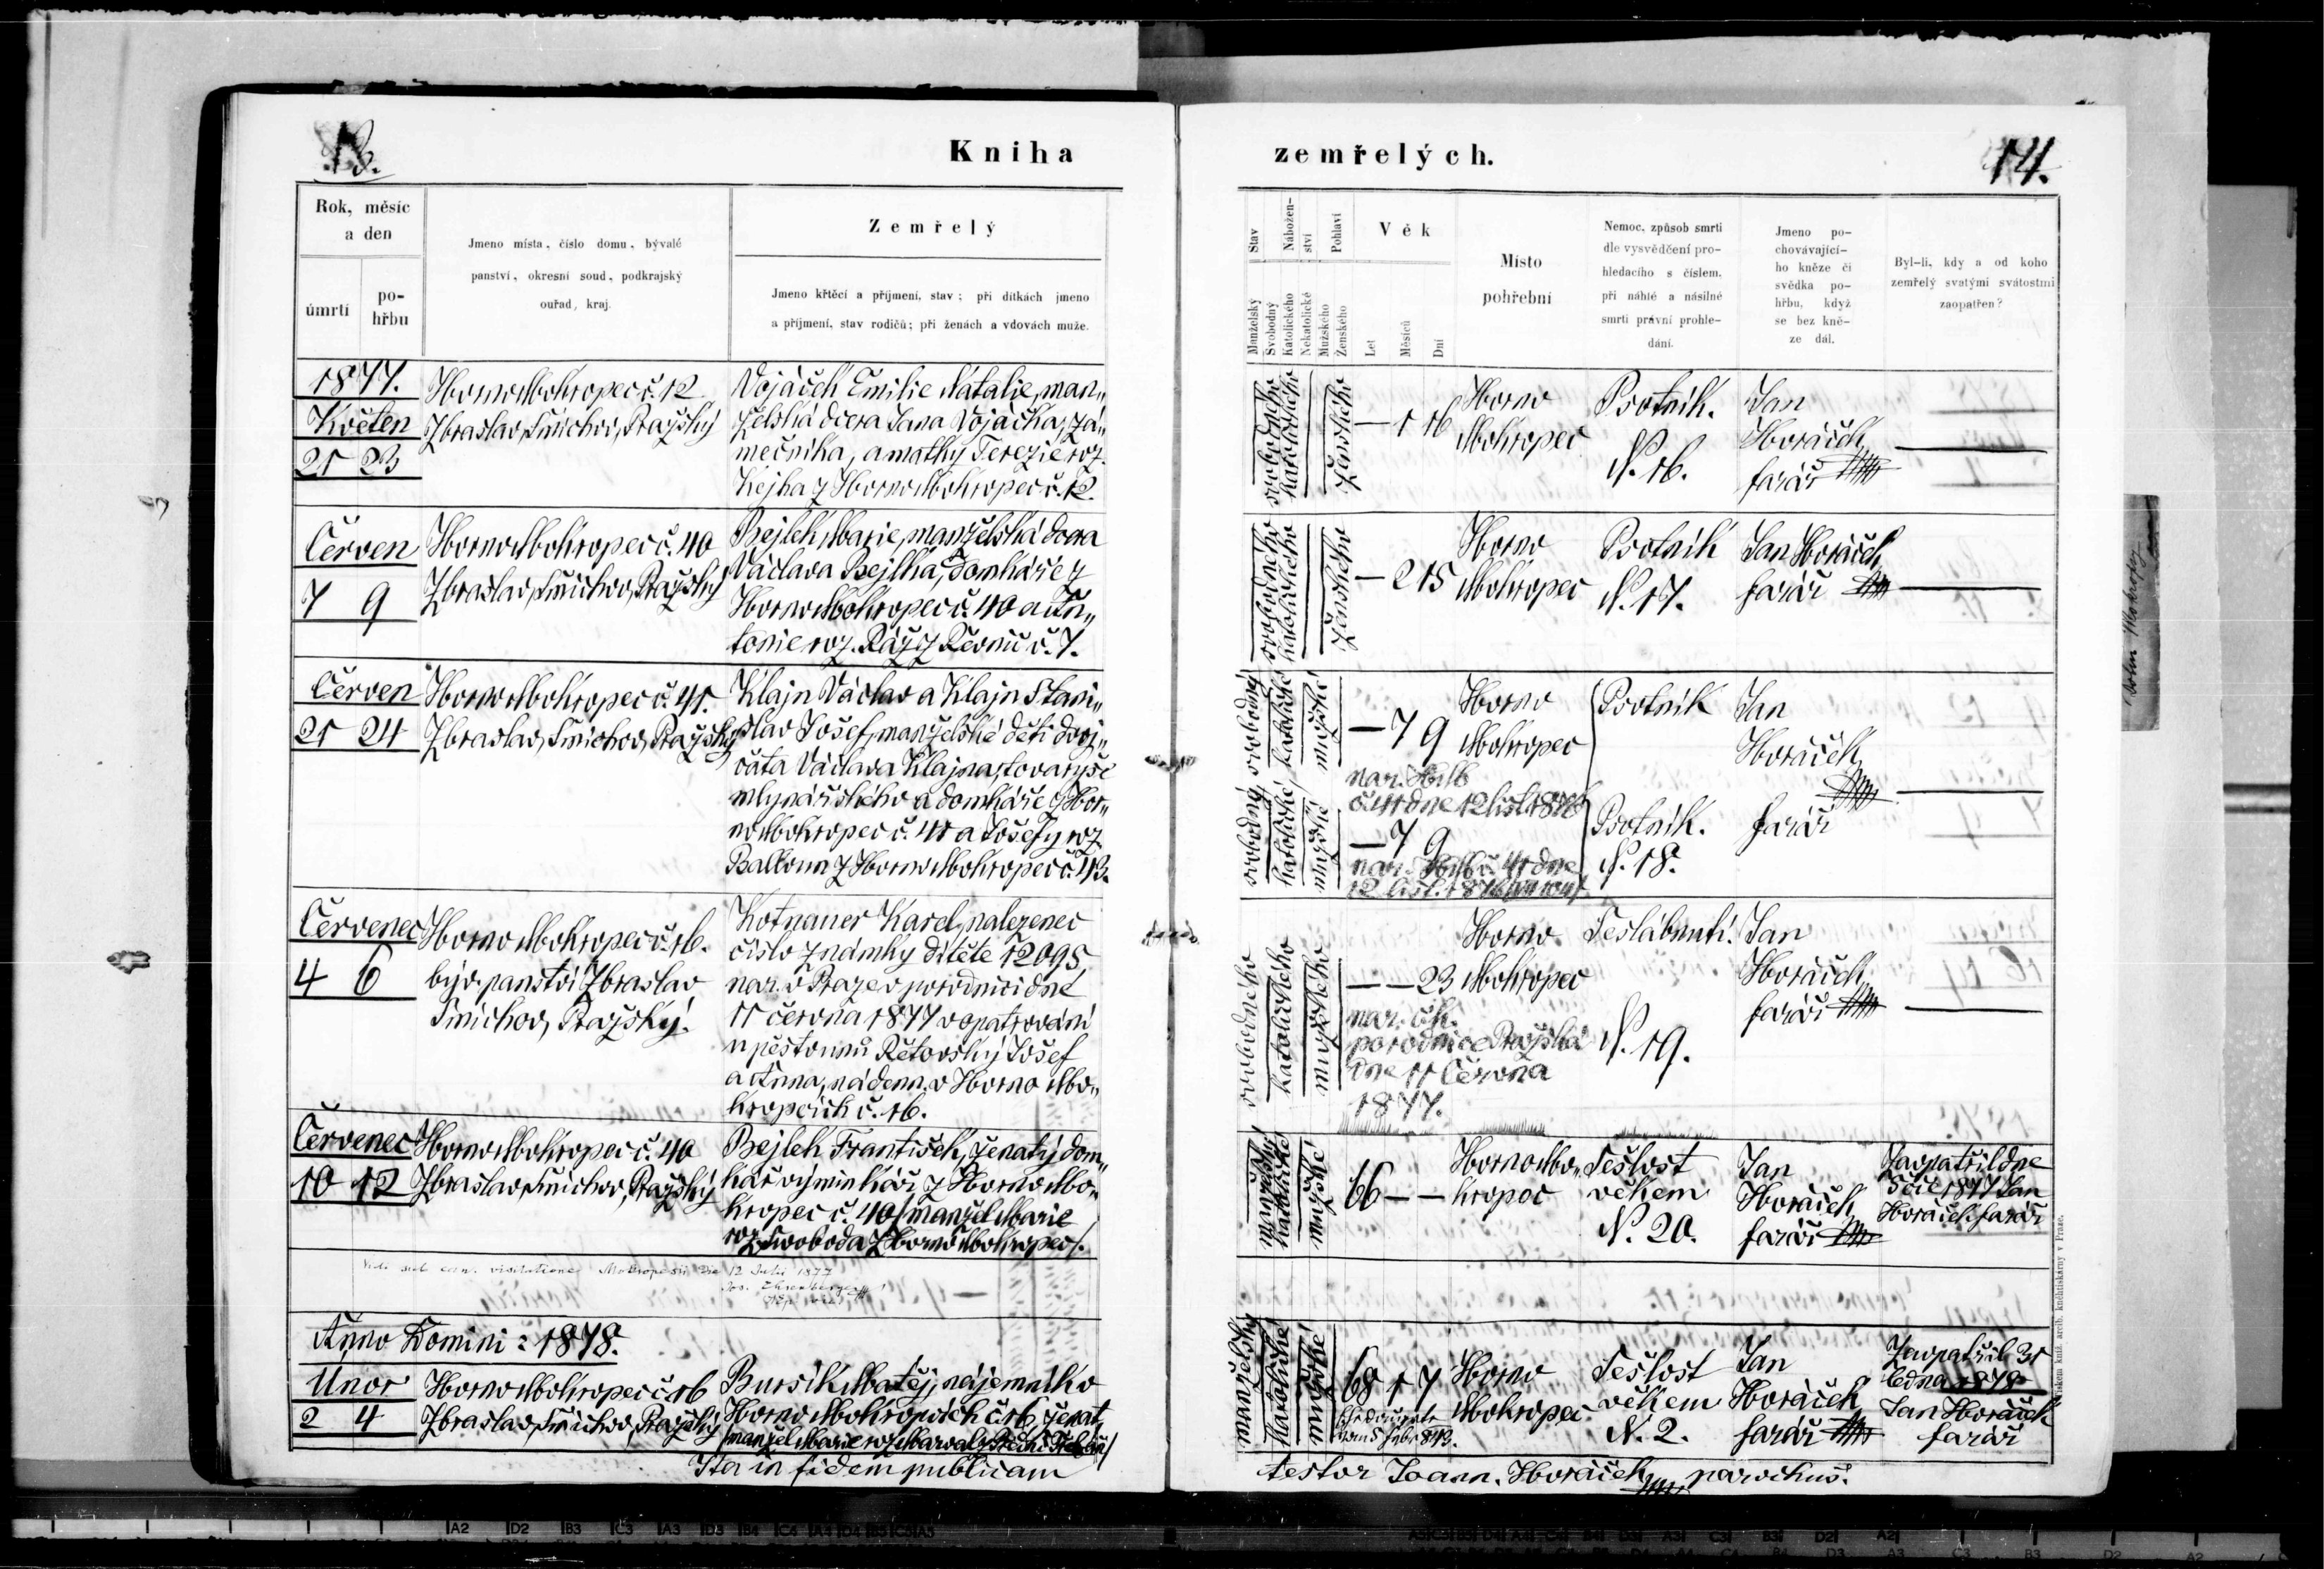 13.
Kniha
zemřelých.
14.
Rok, měsíc
a den
úmrtí
po-
hřbu
Jmeno místa, číslo domu, bývalé
panství, okresní soud, podkrajský
ouřad, kraj.
Zemřelý
Jmeno křtěcí a příjmení, stav; při dítkách jmeno
a příjmení, stav rodičů; při ženách a vdovách muže.
Stav
Manželský
Svobodný
Nábožen-
ství
Katolického
Nekatolické
Pohlaví
Mužského
Ženského
Věk
Let
Měsíců
Dní
Místo
pohřební
Nemoc, způsob smrti
dle vysvědčení pro-
hledacího s číslem,
při náhlé a násilné
smrti právní prohle-
dání.
Jmeno po-
chovávající-
ho kněze či
svědka po-
hřbu, když
se bez kně-
ze dál.
Byl-li, kdy a od koho
zemřelý svatými svátostmi
zaopatřen?
1877.
Květen
21 23
Horno Mokropec č. 12
Zbraslav, Smichov, Pražský
Vojáček Emilie Natalie, man„
želská dcera Jana Vojáčka, zá„
mečníka, a matky Terezie roz.
Kejha z Horno Mokropec č. 12.
svobodného
katolického
ženského
— 1 16
Horno
Mokropec
Psotník.
N. 16.
Jan
Horáček
farář
Červen
7 9
Horno Mokropec č. 40
Zbraslav, Smichov, Pražský
Bejlek Marie, manželská dcera
Václava Bejlka, domkáře z
Horno Mokropec č. 40 a An„
tonie roz. Ráž z Řevnic č. 7.
svobodného
katolického
ženského
— 2 15
Horno
Mokropec
Psotník
N. 17.
Jan Horáček
farář
Červen
21 24
Horno Mokropec č. 41.
Zbraslav, Smichov, Pražský
Klajn Václav a Klajn Stani„
slav Josef, manželské děti dvoj„
čata Václava Klajna, tovaryše
mlynářského a domkáře z Hor„
no Mokropec č. 41 a Josefy roz.
Balkoun z Horno Mokropec č. 43.
svobodný svobodný
katolické katolické
mužské mužské
— 7 9
Horno
Mokropec
č. 41 dne 12 list. 1876
— 7 9
č. 41 dne
Psotník
Psotník.
N. 18.
Jan
Horáček
farář
Červenec
4 6
Horno Mokropec č. 16.
býv. panství Zbraslav
Smichov, Pražský.
Kotnauer Karel, nalezenec
číslo známky dítěte 12095
nar. v Praze v porodnici dne
11 června 1877 v opatrování
u pěstounů Řetovský Josef
a Anna, nádenn. v Horno Mo„
kropcích č. 16.
svobodného
katolického
mužského
— — 23
Horno
Mokropec
nar. čk.
porodnice Pražská
dne 11 Června
1877.
Seslábnutí.
N. 19.
Jan
Horáček
farář
Červenec
10 12
Horno Mokropec č. 40
Zbraslav, Smichov, Pražský
Bejlek František, ženatý dom„
kář výminkář z Horno Mo„
kropec č. 40 /manžel Marie
roz. Swoboda z Horno Mokropec/.
manželský
katolické
mužské
66 — —
Horno Mo„
kropec
Sešlost
věkem
N. 20.
Jan
Horáček
farář
Zaopatřil dne
5 čce 1877 Jan
Horáček farář
Vidi sub can. visitatione Mokropesii die 12 Julii 1877
Jos. Ehrenberger
Anno Domini: 1878.
Únor
2 4
Horno Mokropec č. 16
Zbraslav, Smichov, Pražský
Bursík Matěj, nájemník v
Horno Mokropcích č. 16, ženat.
/manžel Marie roz.
manželský
katolické
mužské
68 1 7
Horno
Mokropec
Sešlost
věkem
N. 2.
Jan
Horáček
farář
Zaopatřil 31
ledna 1878
Jan Horáček
farář
Ita in fidem publicam
testor Joann. Horáček parochus.